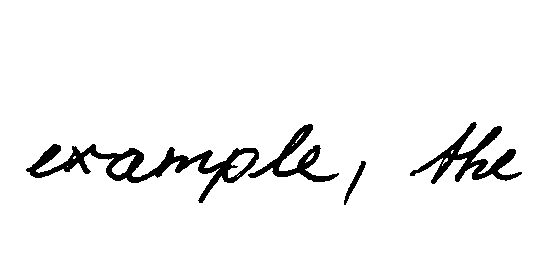 example, the